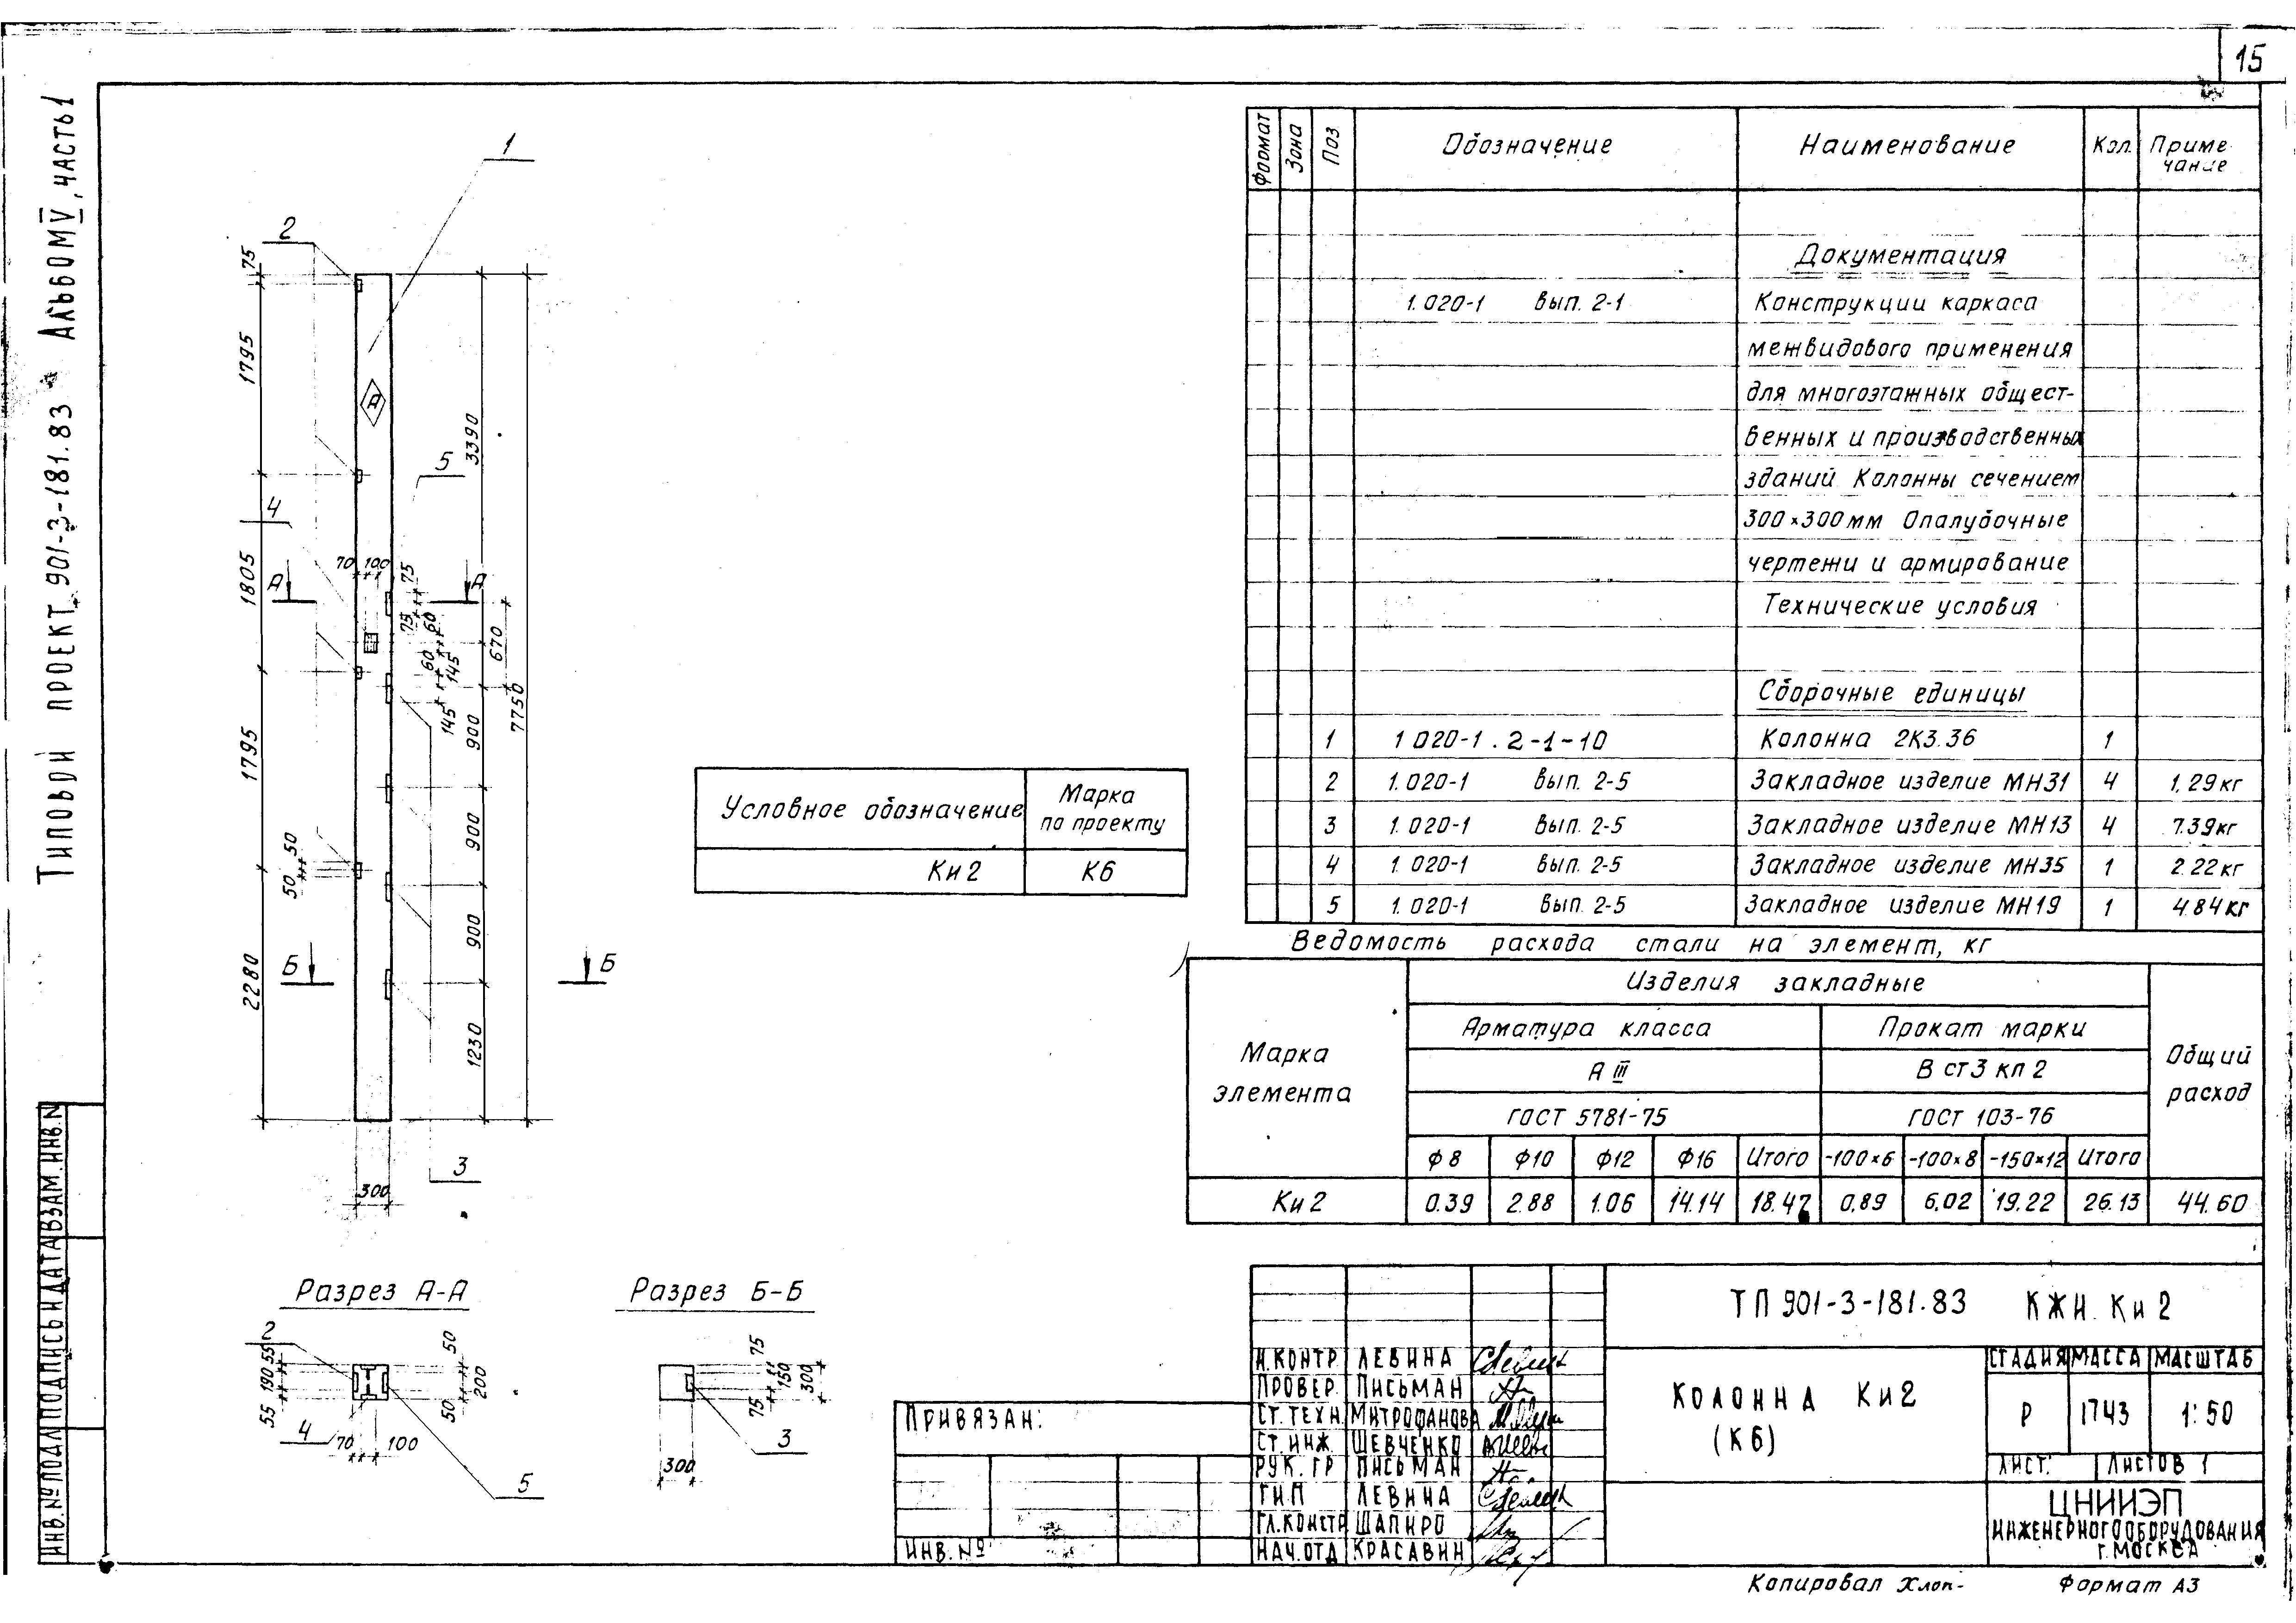 15
Типовой проект 901-3-181.83 Альбом V, часть 1
1
2
75
1795
4
1805
1795
2280
50
50
А
А
70
100
5
75
75
60
60
145
145
670
3390
7750
900
900
900
1230
Б
Б
300
3
Разрез А-А
2
55
190
55
50
200
50
4
70
100
5
Разрез Б-Б
75
150
75
300
300
3
Условное обозначение
Марка
по проекту
Ки2
К6
Формат
Зона
Поз
Обозначение
Наименование
Кол.
Приме
чание
Документация
1.020-1 вып. 2-1 Конструкции каркаса
межвидового применения
для многоэтажных общест-
венных и производственных
зданий Колонны сечением
300×300мм Опалубочные
чертежи и армирование
Технические условия
Сборочные единицы
1 1.020-1.2-1-10 Колонна 2К3.36 1
2 1.020-1 вып. 2-5 Закладное изделие МН31 4 1.29кг
3 1.020-1 вып. 2-5 Закладное изделие МН13 4 7.39кг
4 1.020-1 вып. 2-5 Закладное изделие МН35 1 2.22кг
5 1.020-1 вып. 2-5 Закладное изделие МН19 1 4.84кг
Ведомость расхода стали на элемент, кг
Марка
элемента
Изделия закладные
Арматура класса
Прокат марки
А III
В ст3 кп 2
ГОСТ 5781-75
ГОСТ 103-76
Общий
расход
ф8 ф10 ф12 ф16 Итого -100×6 -100×8 -150×12 Итого
Ки2 0.39 2.88 1.06 14.14 18.47 0,89 6,02 19.22 26.13 44.60
ТП 901-3-181.83 КЖИ. Ки2
Н.контр Левина
Провер. Письман
Ст.техн. Митрофанова
Ст.инж. Шевченко
Рук. гр Письман
ГИП Левина
Гл.констр Шапиро
Нач.отд Красавин
Колонна Ки2
(К6)
Стадия Масса Масштаб
Р 1743 1:50
Лист. Листов 1
ЦНИИЭП
инженерного оборудования
г.Москва
Привязан:
Инв. №
Инв.№подл
Подпись и дата
Взам.инв.N
Копировал Хлоп-
Формат А3